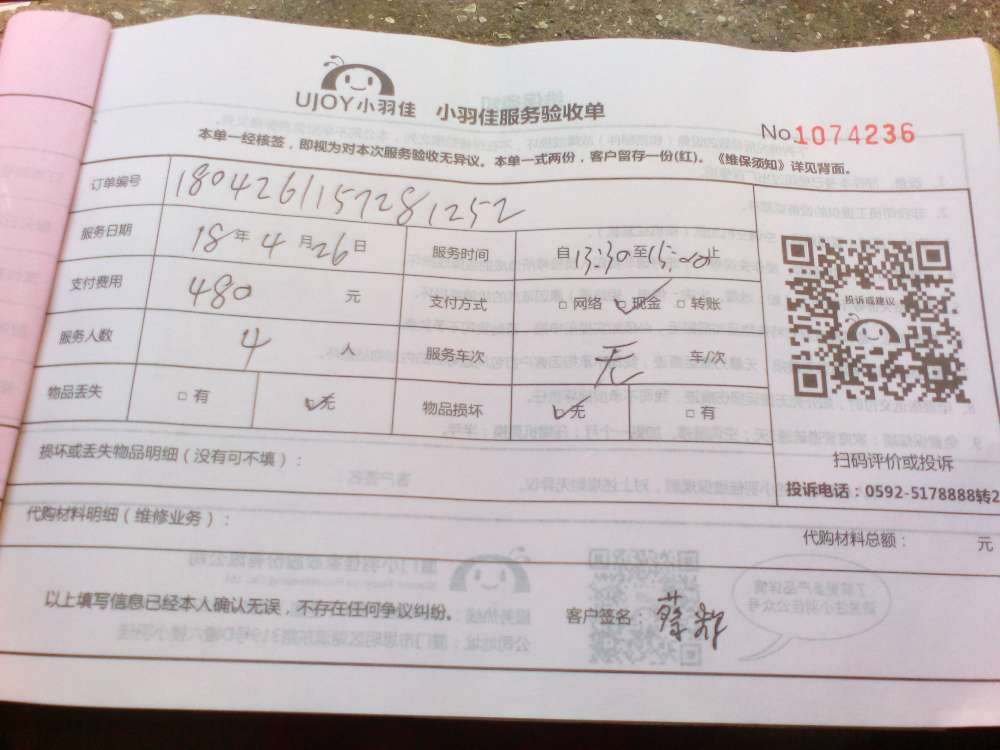 UJOY小羽佳 小羽佳服务验收单
No 1074236
本单一经核签，即视为对本次服务验收无异议。本单一式两份，客户留存一份(红)。《维保须知》详见背面。
订单编号 1804261157281252
服务日期 18 年 4 月 26 日 服务时间 自 13:30 至 15:00 止
支付费用 480 元 支付方式 □ 网络 ☑ 现金 □ 转账
服务人数 4 人 服务车次 无 车/次
物品丢失 □ 有 ☑ 无 物品损坏 ☑ 无 □ 有
投诉或建议
扫码评价或投诉
投诉电话：0592-5178888转2
损坏或丢失物品明细（没有可不填）：
代购材料明细（维修业务）：
代购材料总额： 元
以上填写信息已经本人确认无误，不存在任何争议纠纷。 客户签名：